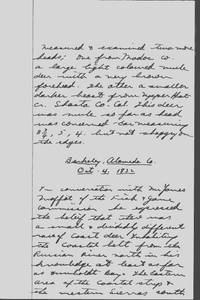 measured & examined two more
heads; One from Modoc Co.
a large light coloured mule
deer with a very brown
forehead. The other a smaller
darker beast from upper Hat
Cr. Shasta Co. Cal. This deer
was mule so far as head
was concerned. Ear measuring
but not shaggy on
the edges.
Berkeley, Alameda Co.
Oct. 4,
In conversation with Mr. James
Moffit of the Fish & Game
Commission he expressed
the belief that there was
a small & distinctly different
race of Coast deer inhabiting
the Coastal belt from the
Russian River north in his
knowledge at least as far
as Humboldt Bay. The eastern
area of the coastal strip &
the western Sierras south